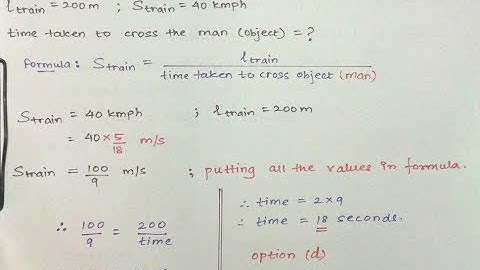 l train = 200 m ; Strain = 40 kmph
time taken to cross the man (object) = ?
Formula: Strain = l train / time taken to cross object (man)
Strain = 40 kmph ; l train = 200 m
= 40 × 5/18 m/s
Strain = 100/9 m/s ; putting all the values in formula.
∴ 100/9 = 200/time
∴ time = 2 × 9
∴ time = 18 seconds.
option (d)